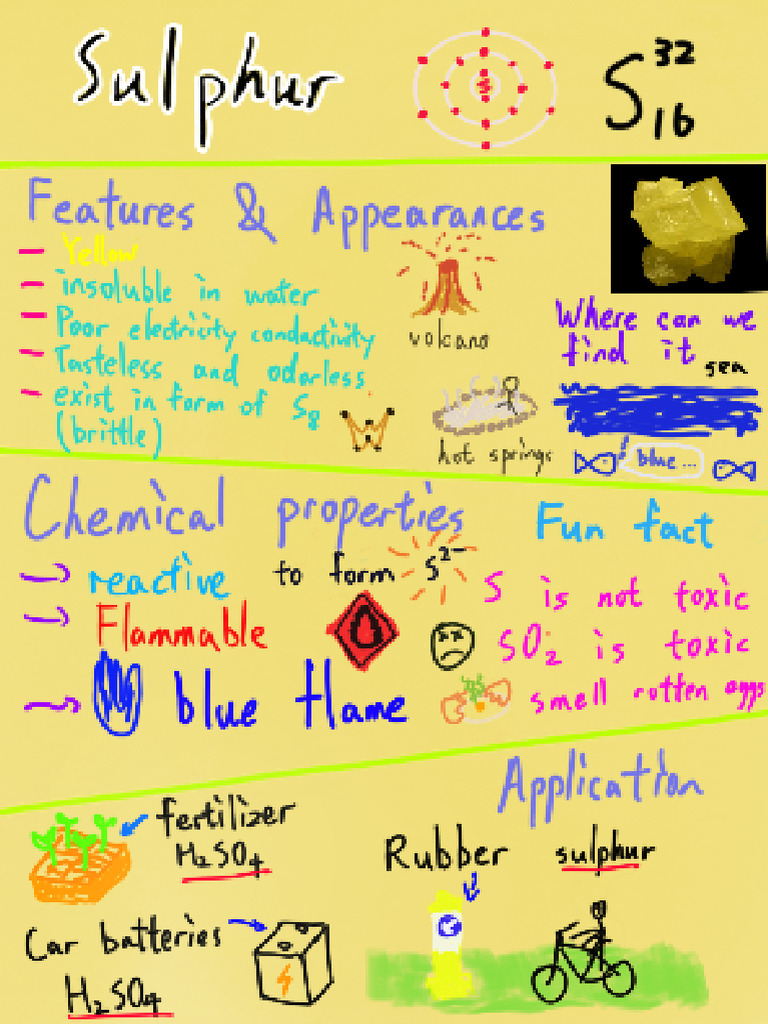 Sulphur
S 32 16
Features & Appearances
- Yellow
- insoluble in water
- Poor electricity conductivity
- Tasteless and odorless
- exist in form of S8
(brittle)
volcano
hot springs
Where can we
find it
sea
blue...
Chemical properties
→ reactive to form S2-
→ Flammable
→ blue flame
Fun fact
S is not toxic
SO2 is toxic
smell rotten eggs
Application
fertilizer
H2SO4
Car batteries
H2SO4
Rubber sulphur